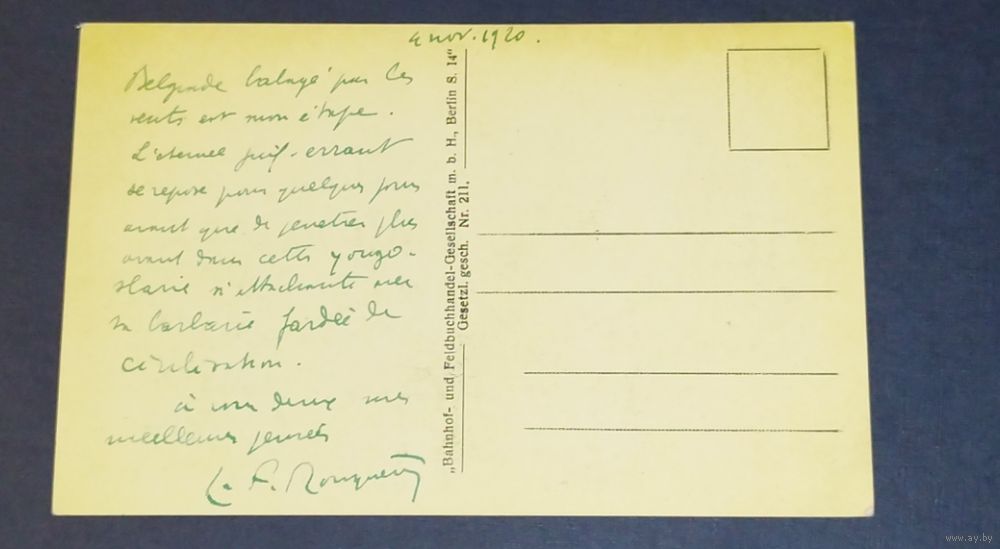 4 nov. 1920.
Belgrade balayé par les
vents est mon étape.
L'éternel juif-errant
se repose pour quelques jours
avant que de pénétrer plus
avant dans cette yougo-
slavie si attachante avec
sa barbarie fardée de
civilisation.
à vous deux mes
meilleures pensées
L. F. Rouquette
„Bahnhof- und Feldbuchhandel-Gesellschaft m. b. H., Berlin S. 14“
Gesetzl. gesch. Nr. 211.
www.ay.by